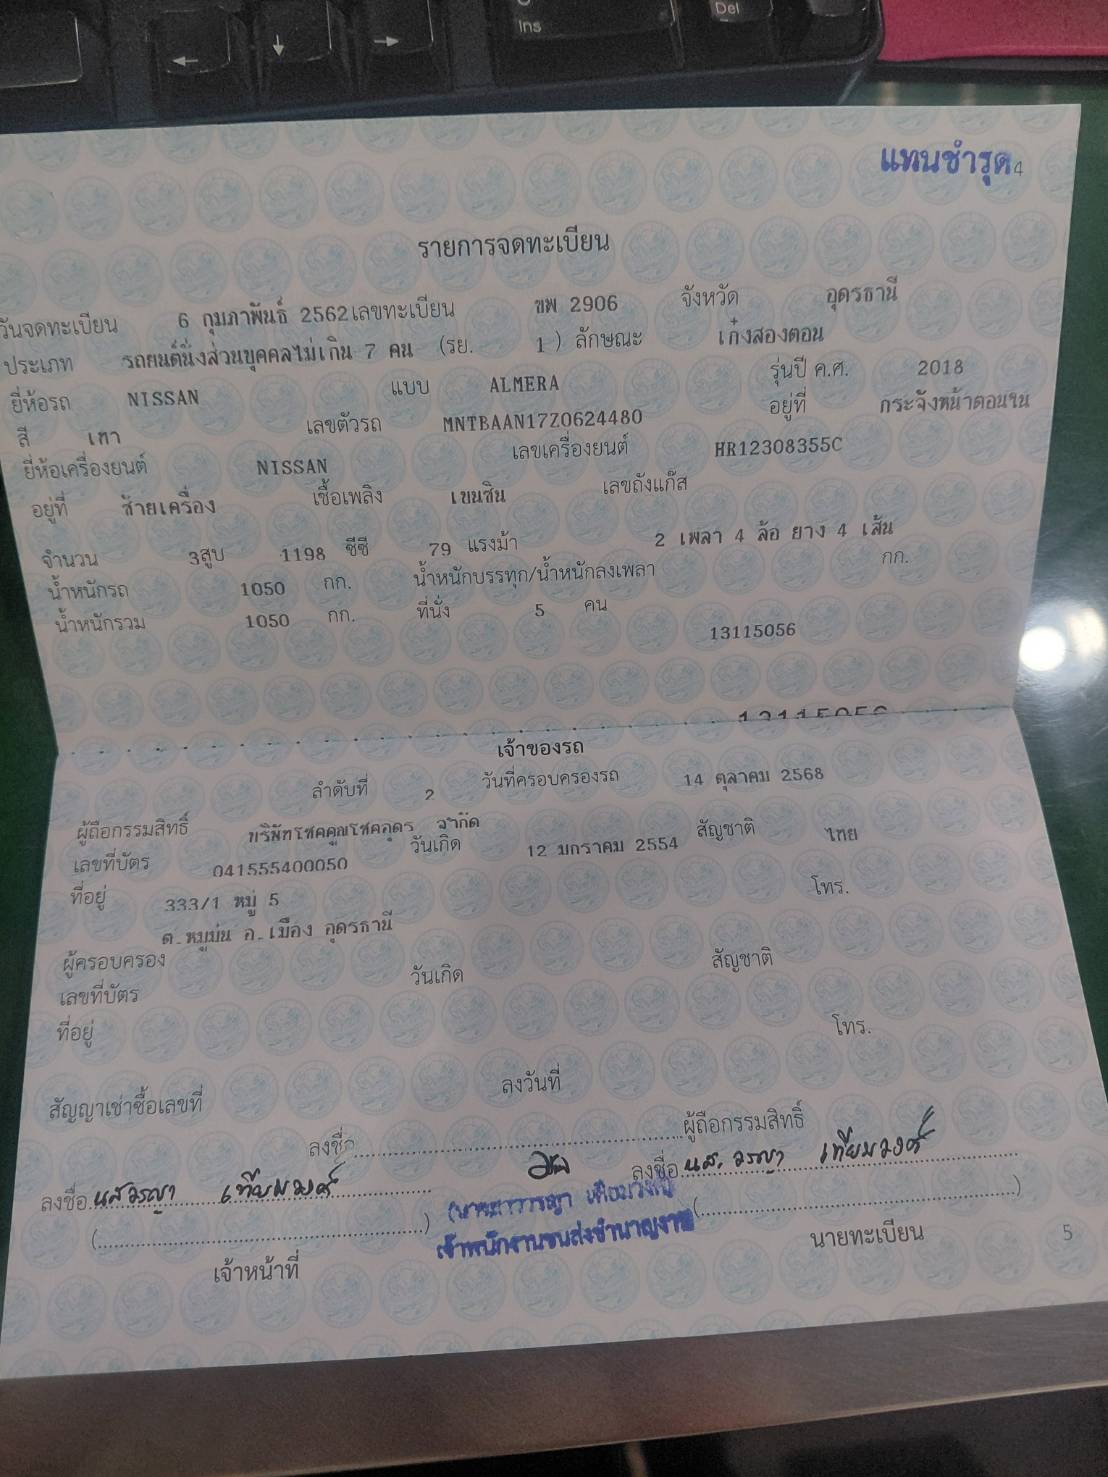 Ins
Del
แทนชำรุด 4
รายการจดทะเบียน
วันจดทะเบียน 6 กุมภาพันธ์ 2562 เลขทะเบียน ขพ 2906 จังหวัด อุดรธานี
ประเภท รถยนต์นั่งส่วนบุคคลไม่เกิน 7 คน (รย. 1 ) ลักษณะ เก๋งสองตอน
ยี่ห้อรถ NISSAN แบบ ALMERA รุ่นปี ค.ศ. 2018
สี เทา เลขตัวรถ MNTBAAN17Z0624480 อยู่ที่ กระจังหน้าตอนบน
ยี่ห้อเครื่องยนต์ NISSAN เลขเครื่องยนต์ HR12308355C
อยู่ที่ ซ้ายเครื่อง เชื้อเพลิง เบนซิน เลขถังแก๊ส
จำนวน 3สูบ 1198 ซีซี 79 แรงม้า 2 เพลา 4 ล้อ ยาง 4 เส้น
น้ำหนักรถ 1050 กก. น้ำหนักบรรทุก/น้ำหนักลงเพลา กก.
น้ำหนักรวม 1050 กก. ที่นั่ง 5 คน
13115056
13115056
เจ้าของรถ
ลำดับที่ 2 วันที่ครอบครองรถ 14 ตุลาคม 2568
ผู้ถือกรรมสิทธิ์ บริษัทโชคคูณโชคอุดร จำกัด
เลขที่บัตร 041555400050 วันเกิด 12 มกราคม 2554 สัญชาติ ไทย
ที่อยู่ 333/1 หมู่ 5 โทร.
ต.หมูม่น อ.เมือง อุดรธานี
ผู้ครอบครอง
เลขที่บัตร วันเกิด สัญชาติ
ที่อยู่ โทร.
สัญญาเช่าซื้อเลขที่ ลงวันที่
ลงชื่อ ผู้ถือกรรมสิทธิ์
ลงชื่อ นส วรญา เทียมวงศ์ ลงชื่อ นส. วรญา เทียมวงศ์
( ) ( )
เจ้าพนักงานขนส่งชำนาญงาน
เจ้าหน้าที่ นายทะเบียน 5